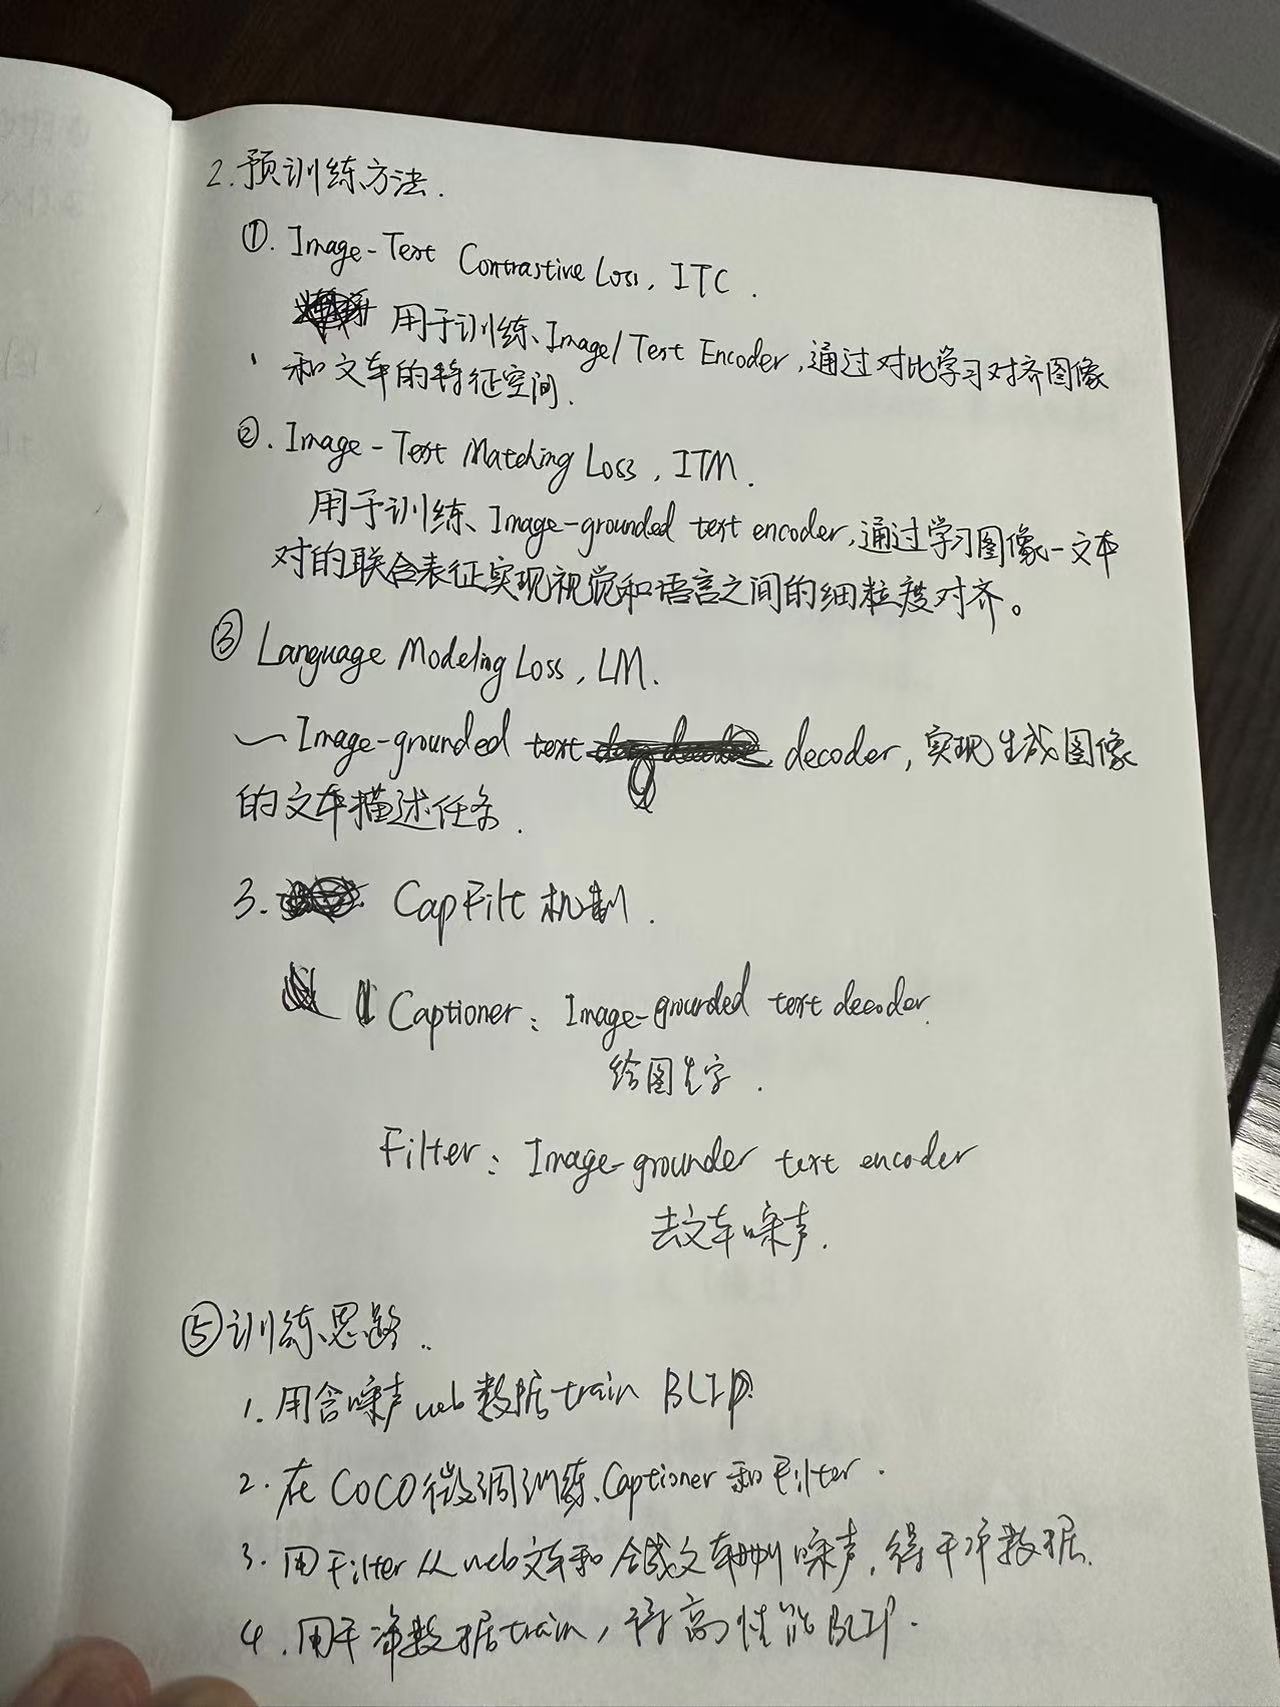 2. 预训练方法.
①. Image-Text Contrastive Loss, ITC.
用于训练Image/Text Encoder,通过对比学习对齐图像
和文本的特征空间.
②. Image-Text Matching Loss, ITM.
用于训练Image-grounded text encoder,通过学习图像-文本
对的联合表征实现视觉和语言之间的细粒度对齐。
③ Language Modeling Loss, LM.
Image-grounded text decoder,实现生成图像
的文本描述任务.
3. CapFilt 机制.
Captioner: Image-grounded text decoder.
给图生字.
Filter: Image-grounder text encoder
去文本噪声.
⑤训练思路.
1. 用含噪声web数据train BLIP.
2. 在COCO微调训练Captioner和Filter.
3. 用Filter从web文本和合成文本删噪声,得干净数据.
4. 用干净数据train,得高性能BLIP.